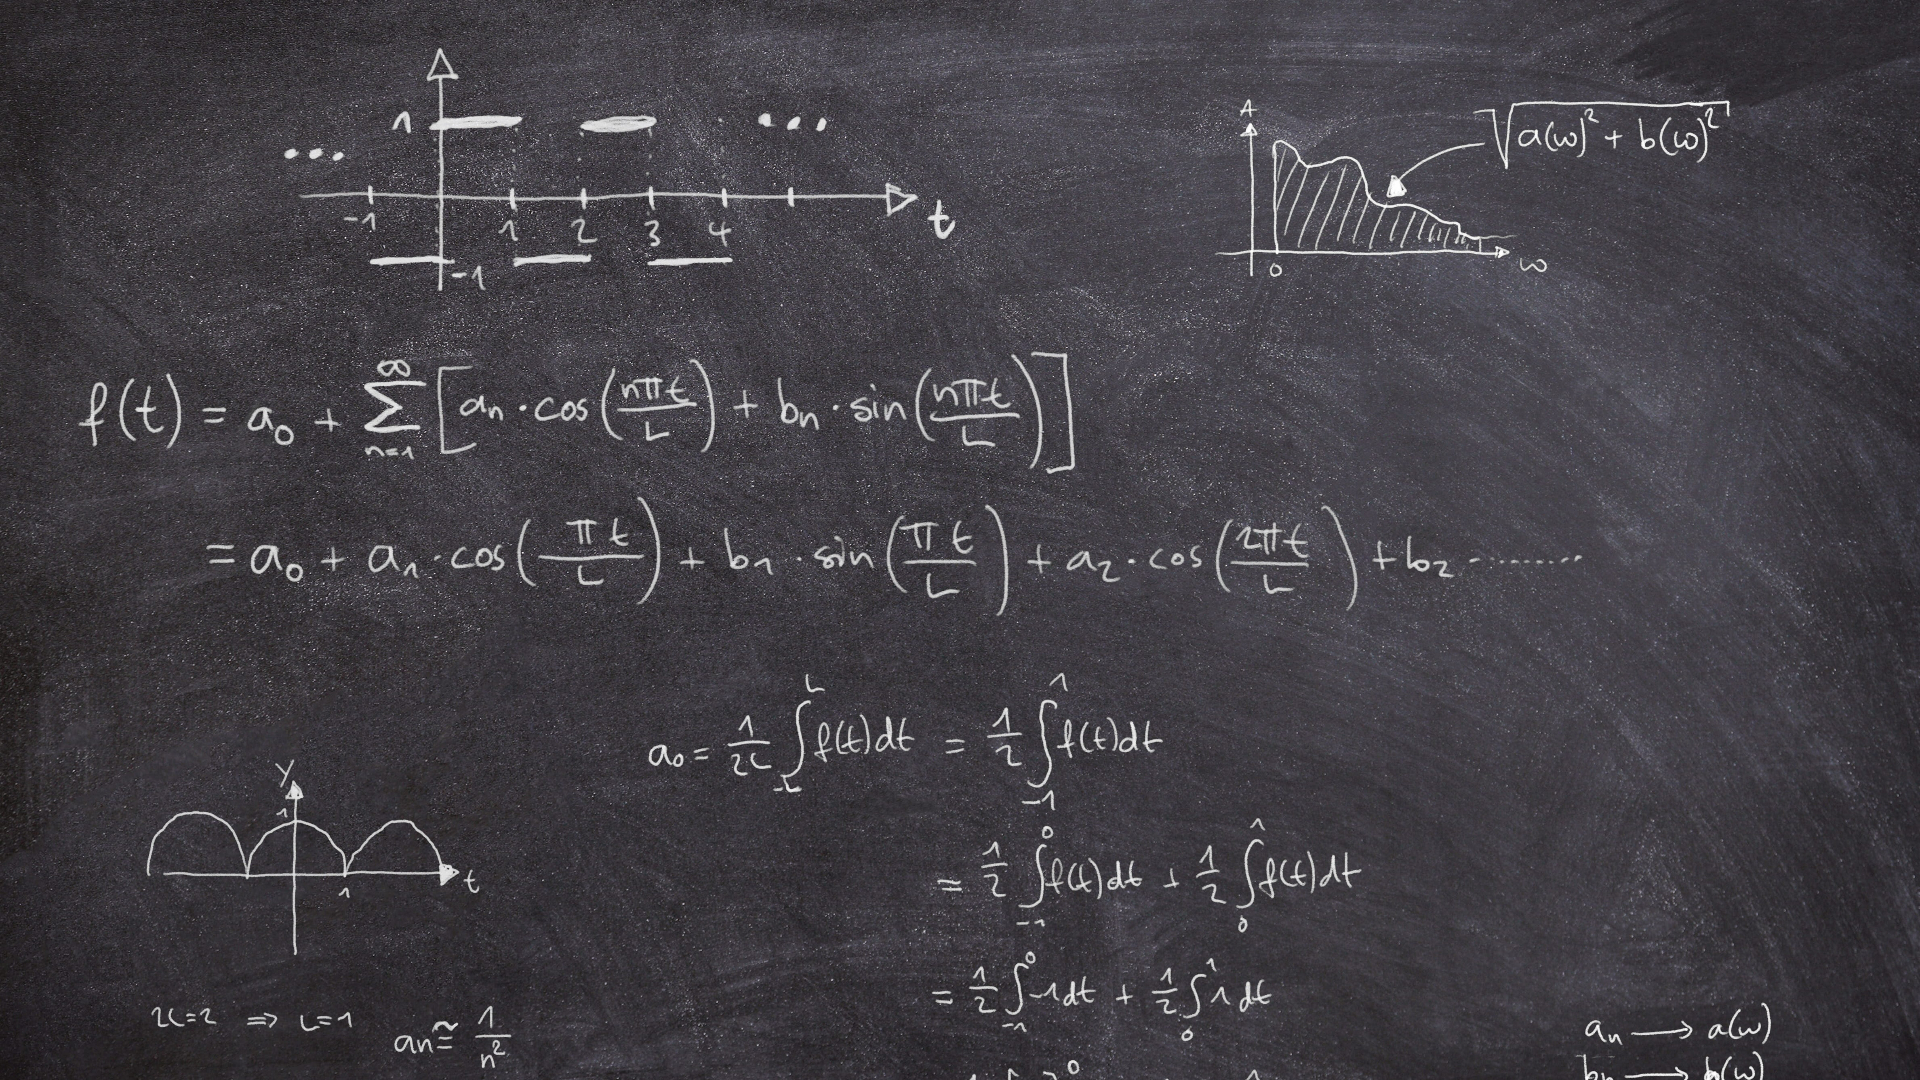 1
...
...
-1 1 2 3 4 t
-1
A
√(a(ω)² + b(ω)²)
0 ω
f(t) = a₀ + ∑_{n=1}^{∞} [aₙ · cos(nπt/L) + bₙ · sin(nπt/L)]
= a₀ + a₁ · cos(πt/L) + b₁ · sin(πt/L) + a₂ · cos(2πt/L) + b₂ ........
a₀ = 1/2L ∫_{-L}^{L} f(t)dt = 1/2 ∫_{-1}^{1} f(t)dt
y
1
1 t
= 1/2 ∫_{-1}^{0} f(t)dt + 1/2 ∫_{0}^{1} f(t)dt
= 1/2 ∫_{-1}^{0} -1dt + 1/2 ∫_{0}^{1} 1dt
2L=2 ⇒ L=1
an ≅ 1/n²
aₙ → a(ω)
bₙ → b(ω)